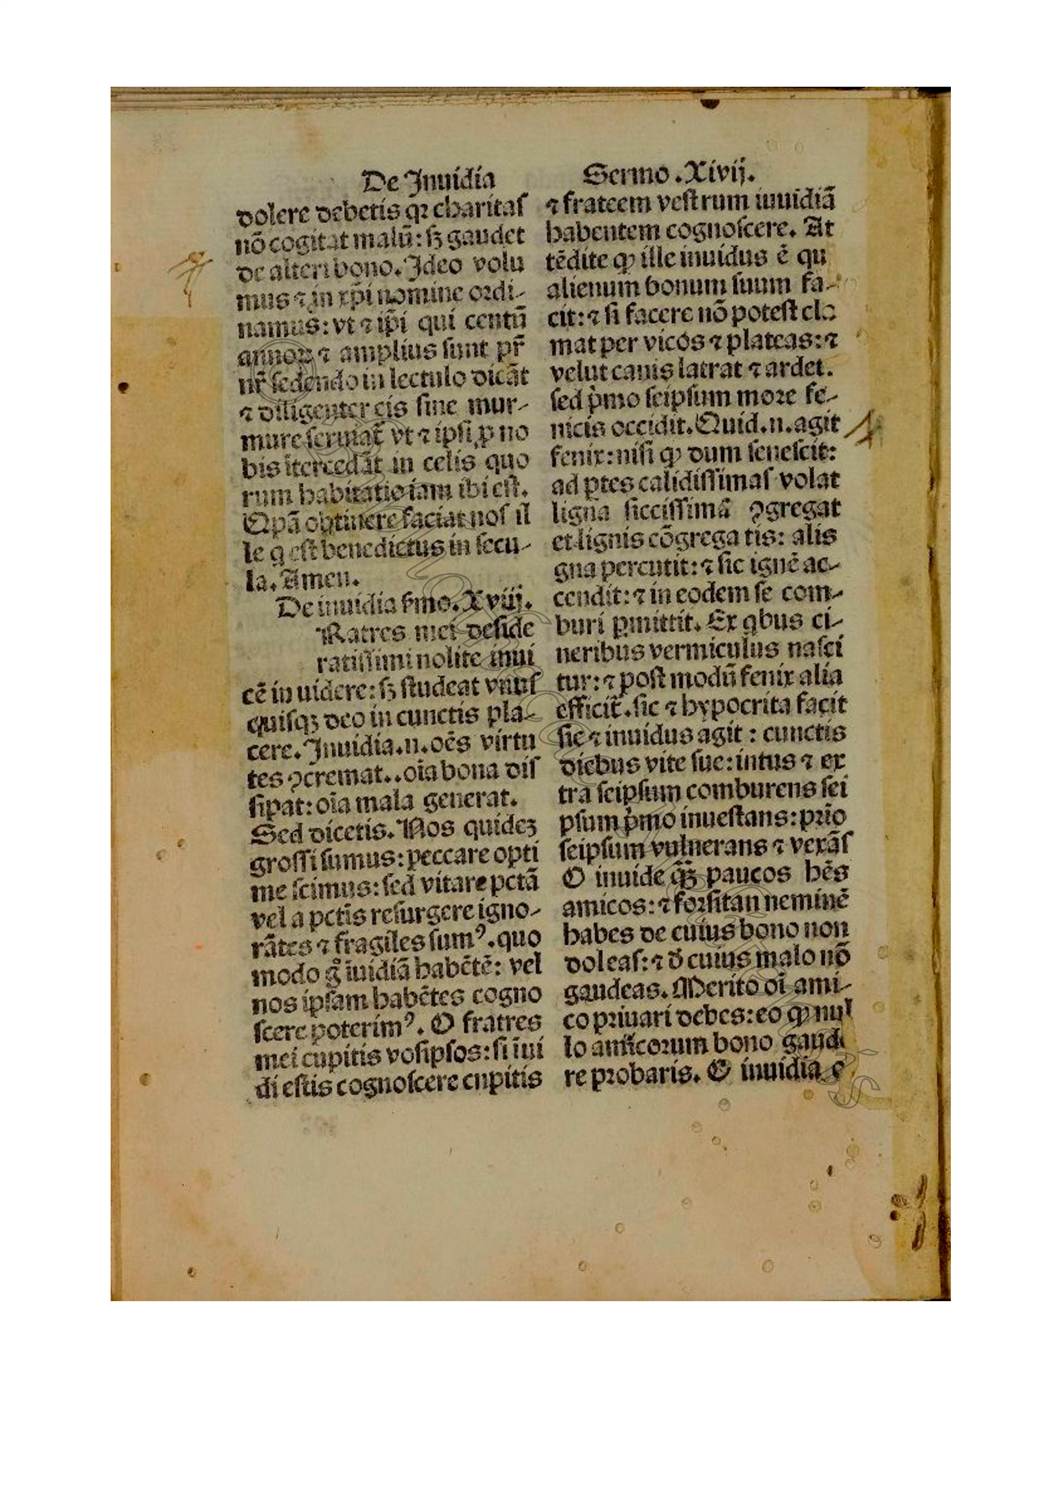 De Inuidia
dolere debetis qꝛ charitaſ
nō cogitat malū: ſꝫ gaudet
de alteri bono. Ideo volu
mus ⁊ in xp̄i nomine ordi-
namus: vt ⁊ ip̄i qui centū
annoꝝ ⁊ amplius ſunt pr̄
nr̄ ſedendo in lectulo dicāt
⁊ diligenter eis ſine mur-
mure ſeruiāt vt ⁊ ipſi ꝓ no
bis ītercedāt in celis quo
rum habitatio iam ibi eſt.
Qpā obtinere faciat nos il
le q eſt benedictus in ſecu-
la. Amen.
De inuidia ẜmo. Xviij.
Ratres mei deſide
ratiſſimi nolite inui
cē in uidere: ſꝫ ſtudeat vnuſ
quiſqꝫ deo in cunctis pla-
cere. Inuidia .n. oēs virtu
tes ꝯcremat. .oīa bona diſ
ſipat: oīa mala generat.
Sed dicetis. Nos quideꝫ
groſſi ſumus: peccare opti
me ſcimus: ſed vitare pctā
vel a pctīs reſurgere igno-
rātes ⁊ fragiles ſumꝰ. quo
modo g̊ īuidiā habētē: vel
nos ipſam habētes cogno
ſcere poterimꝰ. O fratres
mei cupitis voſipſos: ſi īui
di eſtis cognoſcere cupitis
Sermo .Xivij.
⁊ frateem veſtrum inuidiā
habentem cognoſcere. At
tēdite ꝙ ille inuidus ē qu
alienum bonum ſuum fa-
cit: ⁊ ſi facere nō poteſt cla
mat per vicos ⁊ plateas: ⁊
velut canis latrat ⁊ ardet.
ſed p̄mo ſeipſum moꝛe fe-
nicis occidit. Quid .n. agit
fenix: niſi ꝙ dum ſeneſcit:
ad ꝑtes calidiſſimaſ volat
ligna ſicciſſimā ꝯgregat
et lignis cōgrega tis: alis
gna percutit: ⁊ ſic ignē ac-
cendit: ⁊ in eodem ſe com-
buri ꝑmittit. Ex qbus ci-
neribus vermiculus naſci
tur: ⁊ poſt modū fenix alia
efficit̄. ſic ⁊ hypocrita facit
ſic ⁊ inuidus agit : cunctis
diebus vite ſue: intus ⁊ ex
tra ſeipſum comburens ſei
pſum p̄mo inueſtans: prīo
ſeipſum vulnerans ⁊ vexāſ
O inuide qꝫ paucos hēs
amicos: ⁊ foꝛſitan neminē
habes de cuius bono non
doleaſ: ⁊ đ cuius malo nō
gaudeas. Merito oī ami-
co pꝛiuari debes: eo ꝙ nul
lo amicoꝛum bono gaude
re pꝛobaris. O inuidia